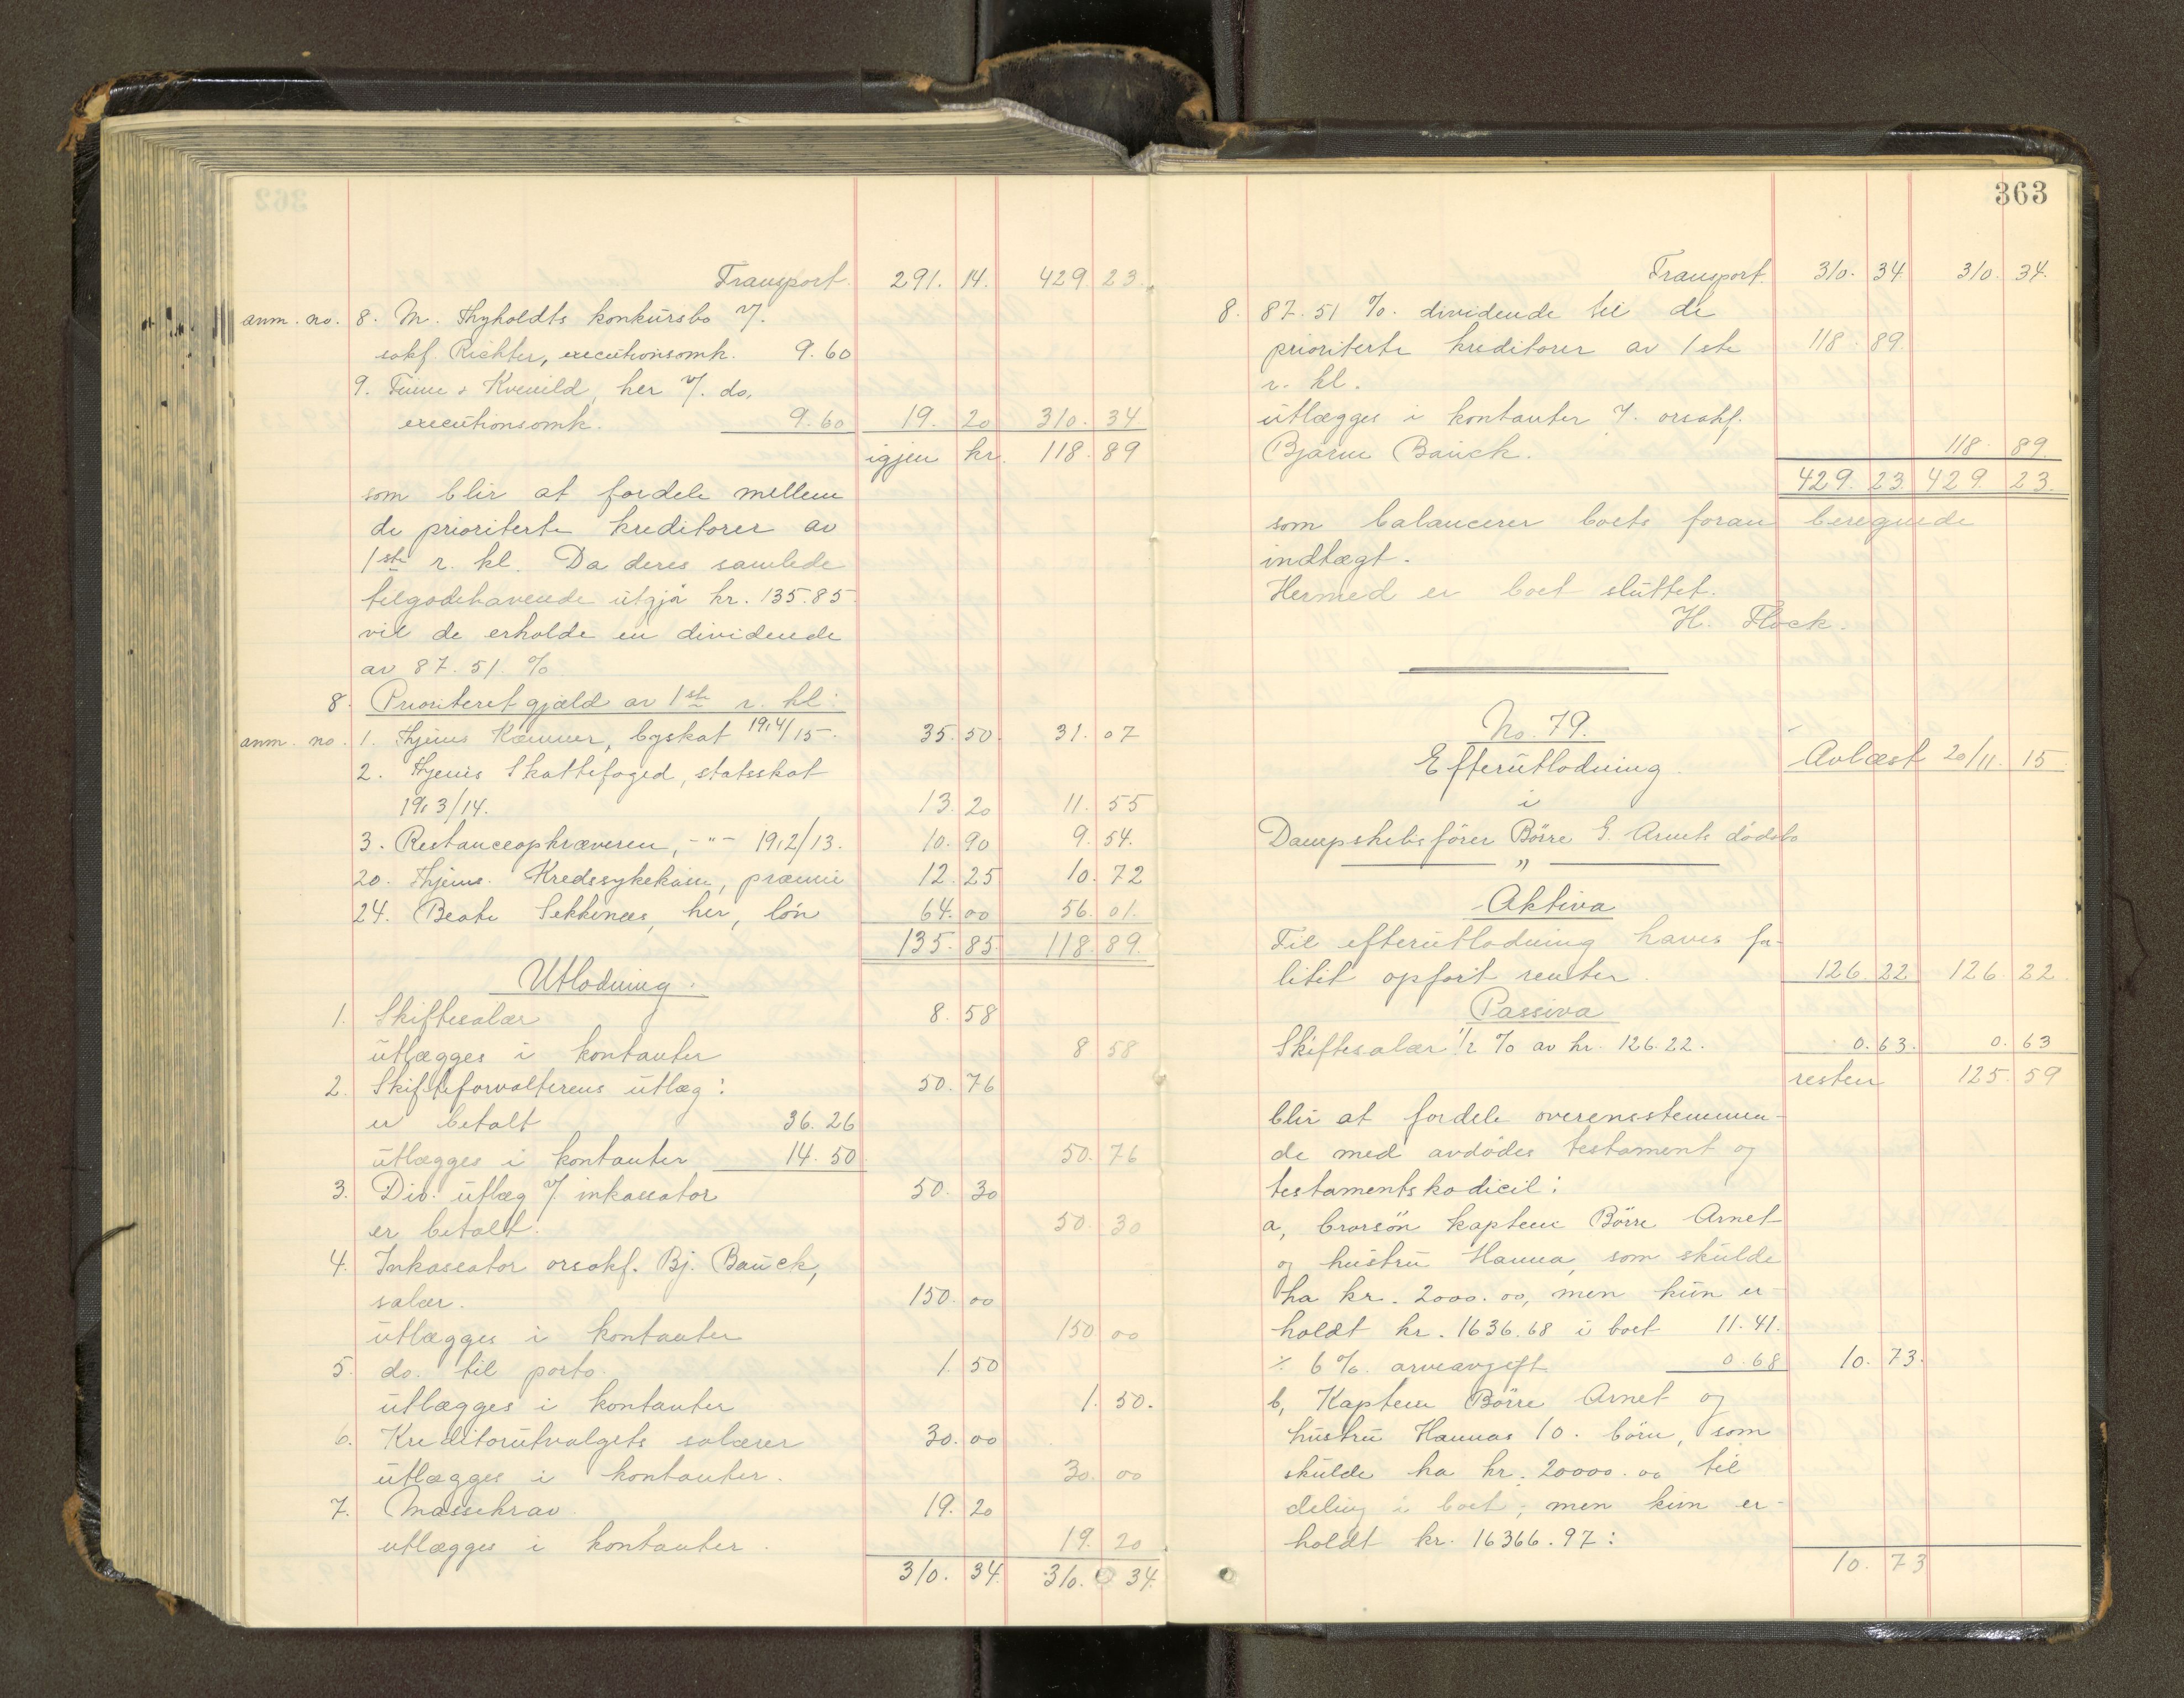 Transport. 291. 14. 429. 23.
anm. no. 8. M. Thyholdts konkursbo v/.
sakf. Richter, executionsomk. 9.60
9. Finne & Kvenild, her v/. do,
executionsomk. 9.60 19. 20 310. 34
igjen kr. 118. 89
som blir at fordele mellem
de prioriterte kreditorer av
1ste r. kl. Da deres samlede
tilgodehavende utgjør kr. 135.85
vil de erholde en dividende
av 87.51 %
8. Prioritert gjæld av 1ste r. kl:
anm. no. 1. Thjems Kæmner, byskat 1914/15. 35. 50. 31. 07
2. Thjems Skattefoged, statsskat
1913/14. 13. 20 11. 55
3. Restanceopkræveren, -"- 1912/13. 10. 90 9. 54.
20. Thjems. Kredssykekasse, præmie 12. 25 10. 72
24. Beate Sekkenæs, her, løn 64. 00 56. 01.
135. 85. 118. 89.
Utlodning.
1. Skiftesalær 8. 58
utlægges i kontanter 8 58
2. Skifteforvalterens utlæg: 50. 76
er betalt 36. 26
utlægges i kontanter 14. 50 50. 76
3. Div. utlæg v/ inkassator 50. 30
er betalt. 50. 30
4. Inkassator orsakf. Bj. Bauck,
salær. 150. 00
utlægges i kontanter 150 00
5. do. til porto 1. 50
utlægges i kontanter 1. 50.
6. Kreditorutvalgets salærer 30. 00
utlægges i kontanter. 30. 00
7. Massekrav. 19. 20
utlægges i kontanter. 19. 20
310. 34. 310. 34.
363
Transport. 310. 34 310. 34.
8. 87.51 %. dividende til de
prioriterte kreditorer av 1ste 118. 89
r. kl.
utlægges i kontanter v/. orsakf.
Bjarne Bauck. 118. 89.
429. 23 429. 23.
som balancerer boets foran beregnede
indtægt.
Hermed er boet sluttet.
H. Flock.
No. 79.
Efterutlodning. Avlæst 20/11. 15
i
Dampskibsfører Børre G. Arnets dødsbo
"
Aktiva
Til efterutlodning haves fa-
litit opført renter. 126. 22 126. 22.
Passiva
Skiftesalær 1/2 % av kr. 126.22. 0. 63. 0. 63
resten 125. 59
blir at fordele overensstemmen-
de med avdødes testament og
testamentskodicil:
a, brorsøn kaptein Børre Arnet
og hustru Hanna, som skulde
ha kr. 2000.00, men kun er-
holdt kr. 1636.68 i boet 11.41.
÷ 6 %. arveavgift 0.68 10. 73.
b, Kaptein Børre Arnet og
hustru Hannas 10. børn, som
skulde ha kr. 20000.00 til
deling i boet; men kun er-
holdt kr. 16366.97:
10. 73